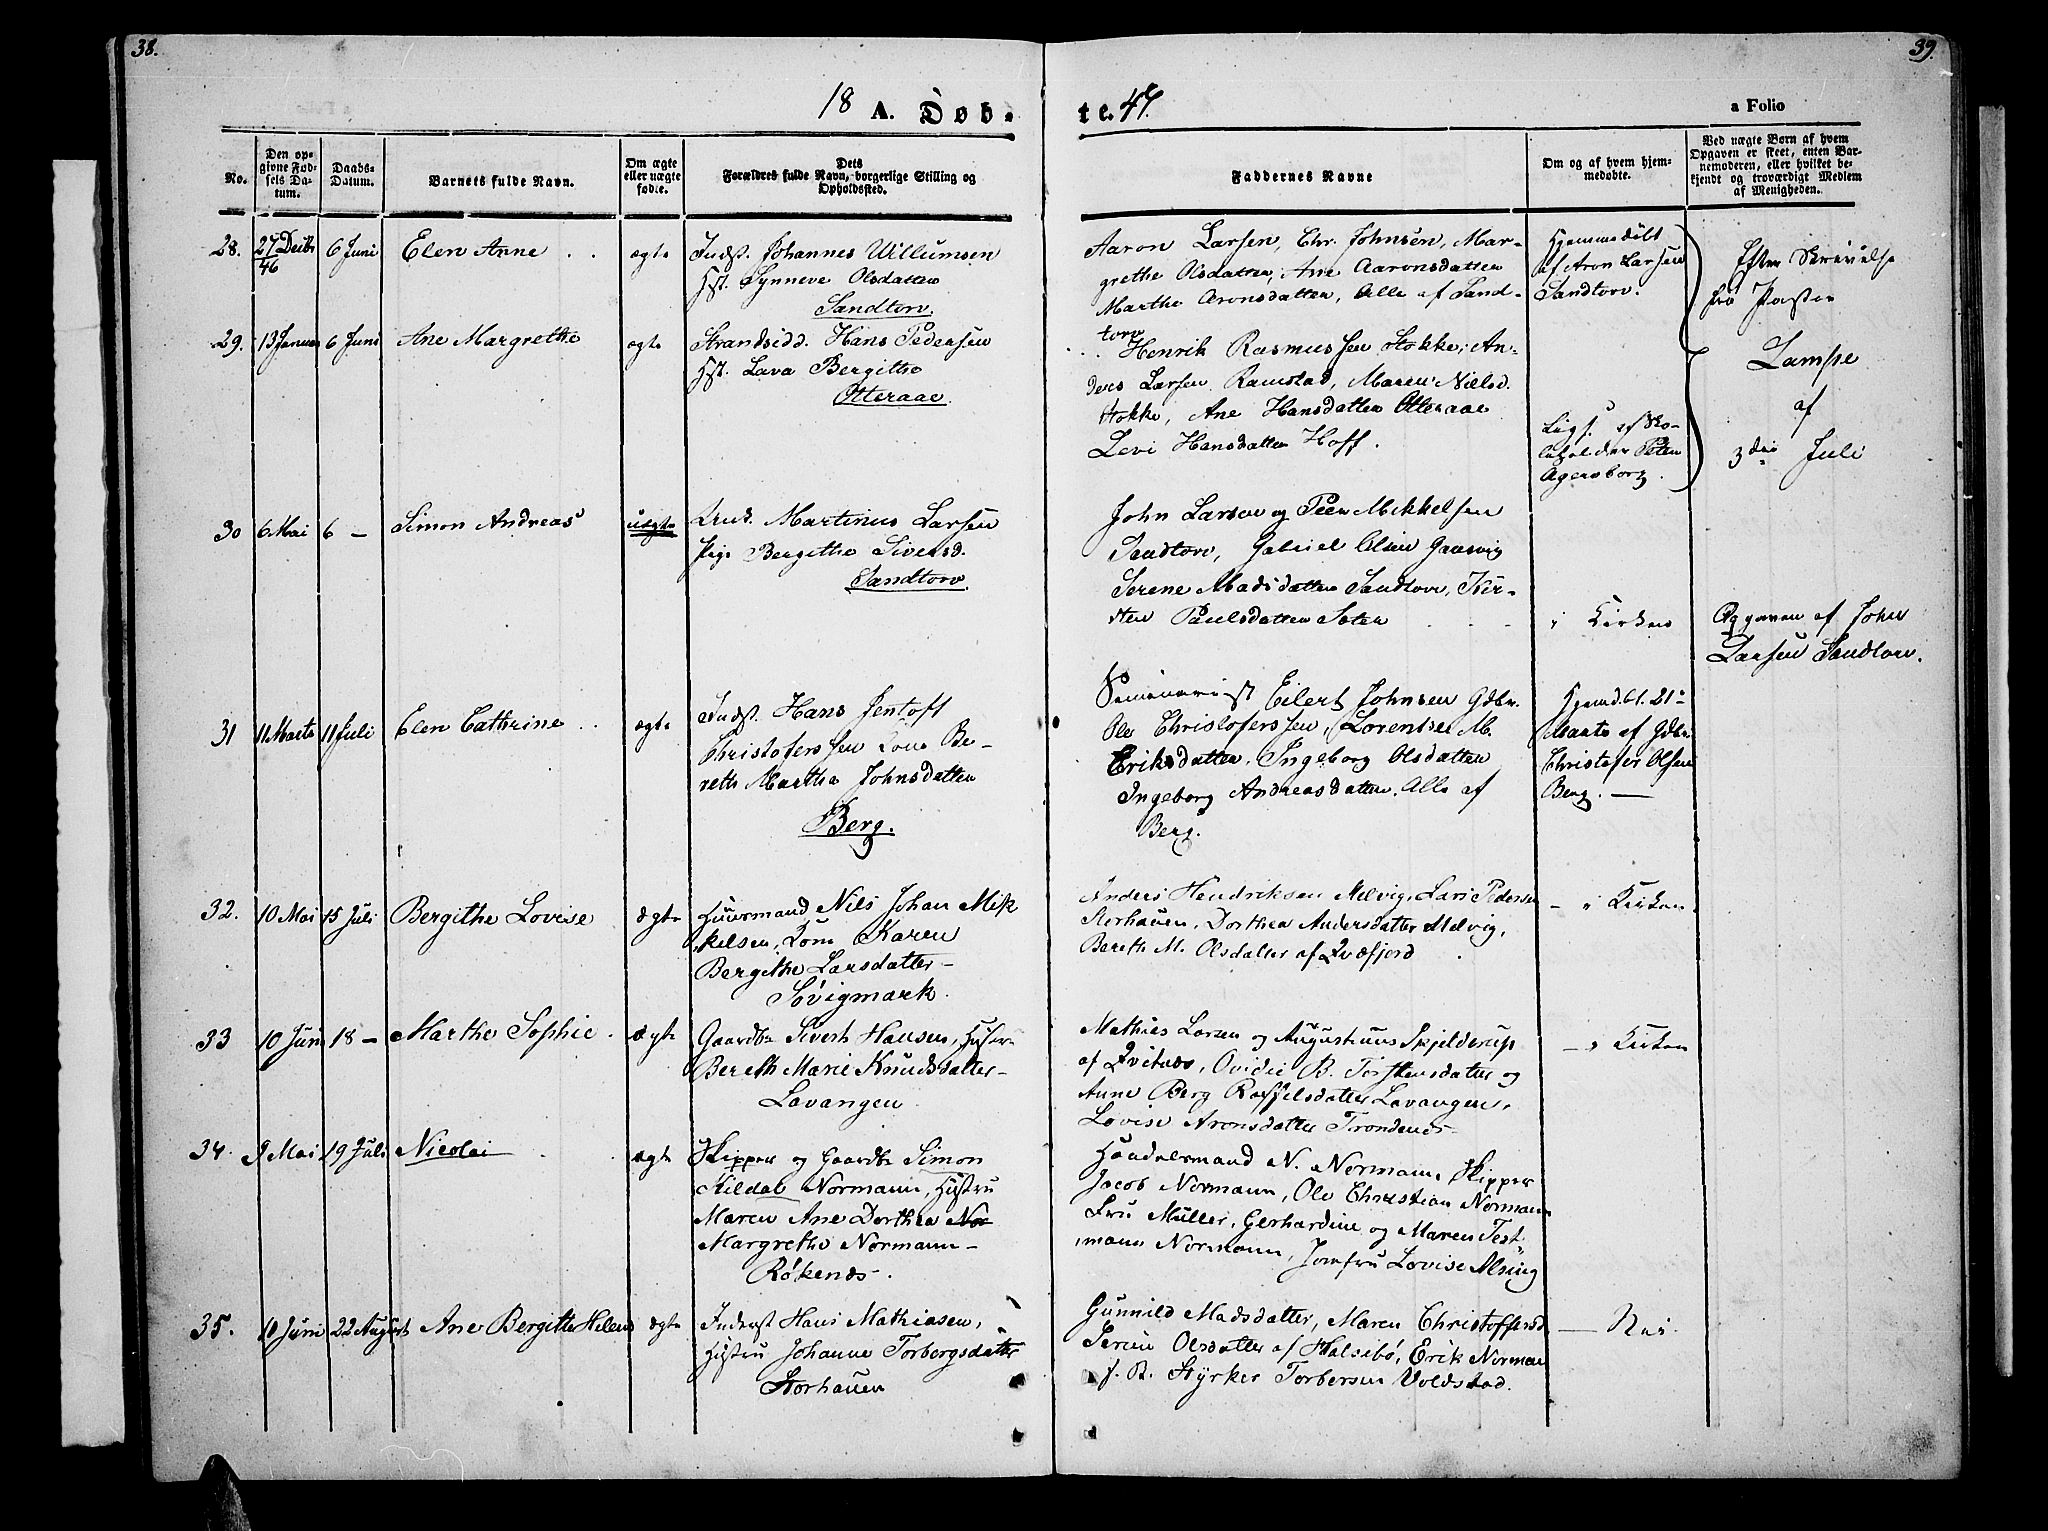 38.
39.
18 A. Døb-
te. 47.
a Folio
No.
Den op-
givne Fød-
sels Da-
tum.
Daabs-
Datum.
Barnets fulde Navn.
Om ægte
eller uægte
fød.e.
Dets
Forældres fulde Navn, borgerlige Stilling og
Opholdssted.
Faddernes Navne
Om og af hvem hjem-
medøbte.
Ved uægte Børn af hvem
Opgaven er skeet, enten Bar-
nemoderen, eller hvilket be-
kjendt og troværdigt Medlem
af Menigheden.
28. 27 Decbr 46 6 Juni Elen Anne ægte
Indst. Johannes Willumsen
Hst. Synneve Olsdatter
Sandtorv.
Aaron Larsen, Chr. Johnsen, Mar-
grethe Olsdatter, Ane Aaronsdatter
Martha Aronsdatter, Alle af Sand-
torv
Hjemmedøbt
af Aron Larsen
Sandtorv.
Efter Skrivelse
fra Pastor
Lampe
af
3die Juli
29. 13 Januar 6 Juni Ane Margrethe ægte
Strandsidd. Hans Pedersen
Hst. Lava Bergithe
Otteraae.
Henrik Rasmussen Stokke, An-
ders Larsen Ramstad, Maren Nielsd.
Stokke, Ane Hansdatter Otteraae
Levi Hansdatter Hoff.
Ligs. af Sko-
leholder Peter
Agersborg.
30 6 Mai 6 — Simon Andreas uægte
Martinus Larsen
Pige Bergithe Siversd.
Sandtorv
John Larsen og Peer Mikkelsen
Sandtorv, Gabriel Olsen Gausvig
Serene Madsdatter Sandtorv, Kir-
sten Paulsdatter
i Kirken
Opgaven af John
Larsen Sandtorv.
31 11 Marts 11 Juli Elen Cathrine ægte
Indst. Hans Jentoft
Christoferssen Kone Be-
reth Martha Johnsdatter
Berg.
Seminarist Eilert Johnsen Gdbr.
Ole Christoferssen, Lorentse M.
Eriksdatter, Ingeborg Olsdatter
Ingeborg Andreasdatter. Alle af
Berg.
Hjemdbt. 21-
Marts af Gdbr.
Christofer Olsen
Berg. —
32. 10 Mai 15 Juli Bergithe Lovise ægte
Huusmand Nils Johan Mik
kelsen, Kone Karen
Bergithe Larsdatter -
Søvigmark.
Anders Hendriksen Melvig, Lars Pedersen
Storhauen, Dorthea Andersdatter Melvig,
Bereth M. Olsdatter af Qvæfjord.
— i Kirken
33 10 Juni 18 — Marthe Sophie. ægte
Gaardbr Sivert Hansen, Hustru
Bereth Marie Knudsdatter -
Lavangen.
Mathies Larsen og Augustinus Skjelderup
af Qvitnæs, Ovidie B. Torstensdatter og
Anne Berg Roffelsdatter Lavangen,
Lovise Aronsdatter Trondenes
— i Kirken
34. 9 Mai 19 Juli Nicolai ægte
Skipper og Gaardbr Simon
Kildal Normann, Hustru
Maren Ane Dorthea Nor
Margrethe Normann -
Røkenæs.
Handelsmand N. Normann, Skipper
Jacob Normann, Ole Christian Normann
Fru Müller, Gerhardine og Maren Test
mann Normann, Jomfru Lovise Alsing
35. 11 Juni 22 August Ane Bergitte Helene ægte
Inderst Hans Mathiasen,
Hustru Johanne Torbergsdatter
Storhauen
Gunnild Madsdatter, Maren Christoffersd
Serine Olsdatter af Halsebø, Erik Norman
s. B. Styrker Torbersen Voldstad.
— Nei.